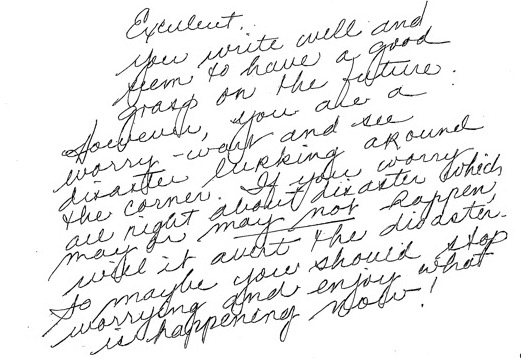 Excellent.
You write well and
seem to have a good
grasp on the future.
However, you are a
worry-wart and see
disaster lurking around
the corner. If you worry
all night about disaster which
may or may not happen,
will it avert the disaster.
So maybe you should stop
worrying and enjoy what
is happening now!